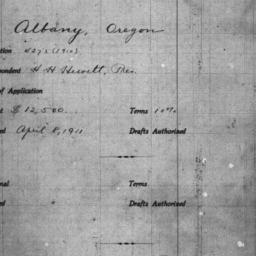 Albany, Oregon
tion 4275 (1910)
pondent H. H. Hewitt, Pres.
of Application
$12,500. Terms 10%
ed April 8, 1911 Drafts Authorized
nal Terms
ed Drafts Authorized